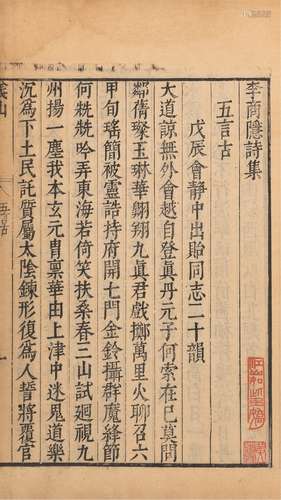 李商隱詩集
五言古
戊辰會靜中出貽同志二十韻
大道諒無外會越自登眞丹元子何索在己莫問
鄰蒨璨玉琳華翺翔九眞君戲擲萬里火聊召六
甲旬瑤簡被靈誥持符開七門金鈴攝羣魔絳節
何兟兟吟弄東海若笑倚扶桑春三山試迴視九
州揚一塵我本玄元胄稟華由上津中迷鬼道樂
沉爲下土民託質屬太陰鍊形復爲人誓將覆宮